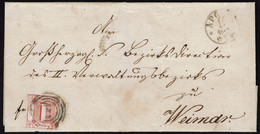 An
Großherzogl. S. Bezirksdirection
des II. Verwaltungsbezirks
zu
Weimar